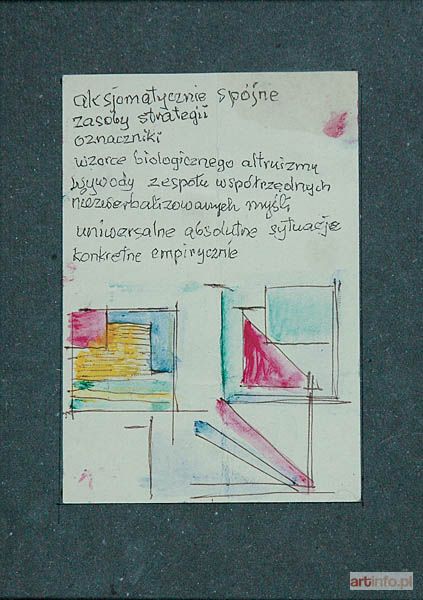 aksjomatycznie spójne
zasoby strategii
oznaczniki
wzorce biologicznego altruizmu
wywody zespołu współrzędnych
niezwerbalizowanych myśli
uniwersalne absolutne sytuacje
konkretne empirycznie
artinfo.pl